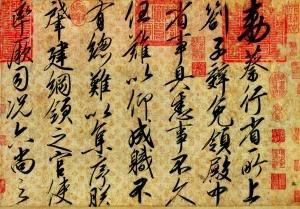 敕蔡行省所上
劄子辭免領殿中
省事具悉事不久
任難以仰成職不
有總難以集序朕
肇建綱領之官使
率厥司況六尚之